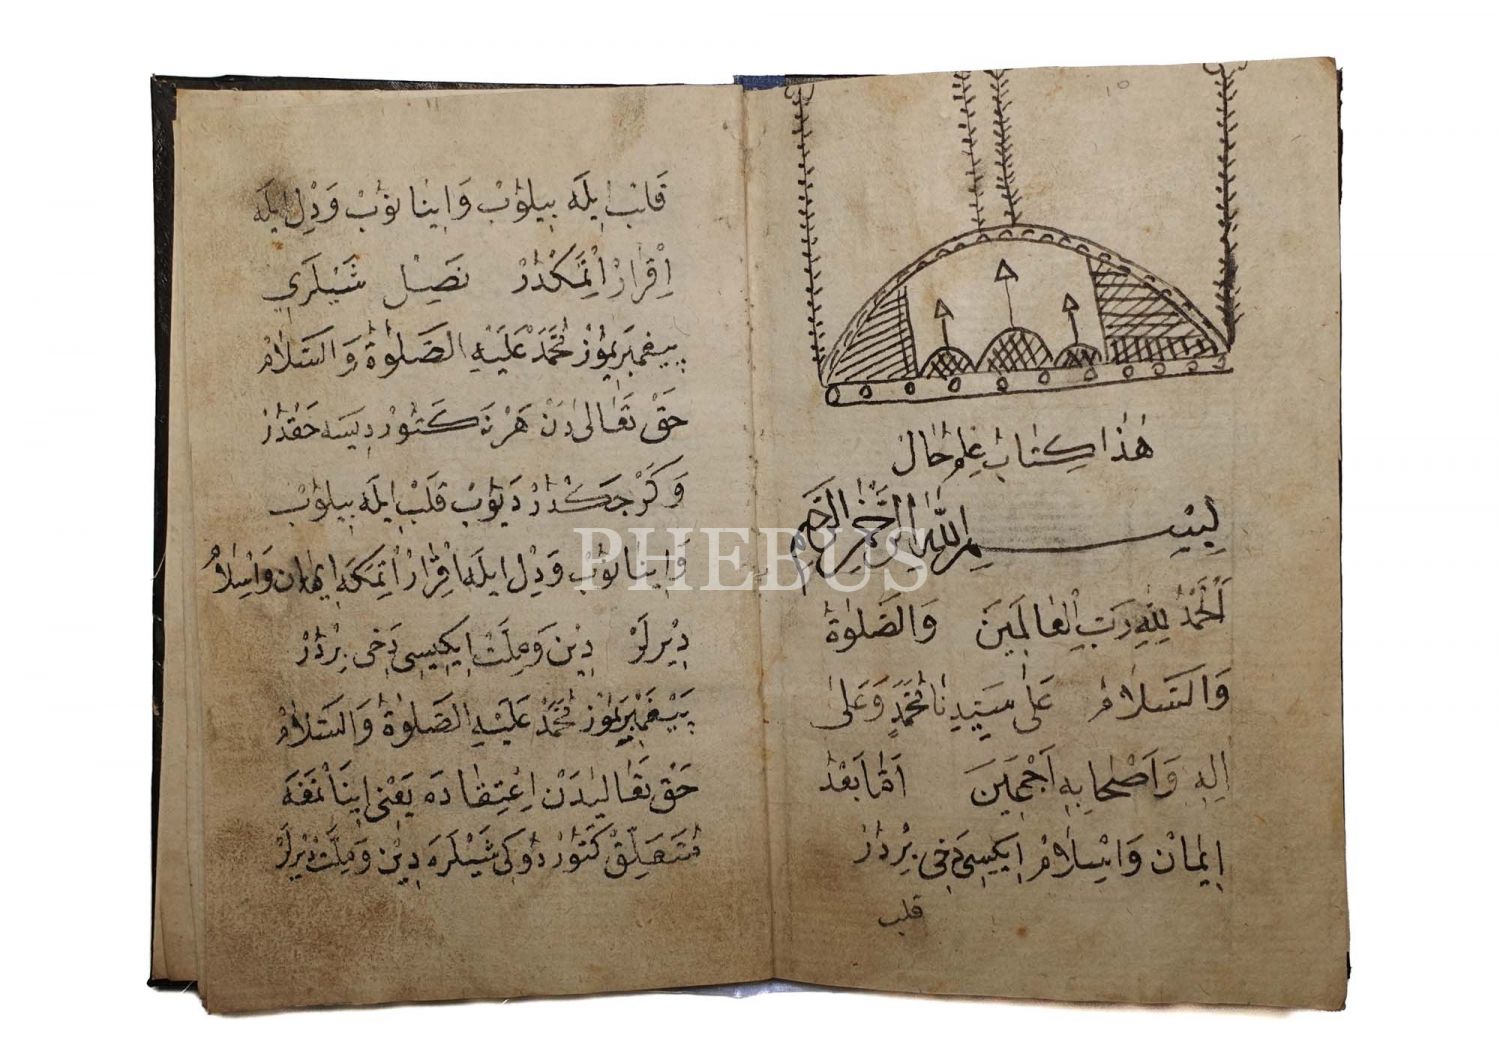 ١٥
هٰذا كِتابُ عِلْمِ حَال
بِسْمِ اللّٰهِ الرَّحْمٰنِ الرَّحِيمِ
اَلْحَمْدُ لِلّٰهِ رَبِّ الْعَالَمِينَ وَالصَّلٰوةُ
وَالسَّلَامُ عَلٰى سَيِّدِنَا مُحَمَّدٍ وَعَلٰى
اٰلِهِ وَاَصْحَابِهِ اَجْمَعِينَ اَمَّا بَعْدُ
اِيمَانْ وَاِسْلَامْ اِيكِيسِى دَخِى بِرْدُرْ
قلب
١١
قَلْبْ اِيلَه بِيلُوبْ وَاِينَانُوبْ وَدِلْ اِيلَه
اِقْرَارْ اِتْمَكْدُرْ نَصِلْ شَيْلَرِى
پيغمبريموز مُحَمَّدْ عَلَيْهِ الصَّلٰوةُ وَالسَّلَامُ
حَقْ تَعَالٰى دَنْ هَرْ نَه كَتُورْدِيسَه حَقْدُرْ
وَكَرْجَكْدُرْ دَيُوبْ قَلْبْ اِيلَه بِيلُوبْ
وَاِينَانُوبْ وَدِلْ اِيلَه اِقْرَارْ اِتْمَكَه اِيمَان وَاِسْلَامْ
دِيرْلَرْ دِينْ وَمِلَّتْ اِيكِيسِى دَخِى بِرْدُرْ
پَيْغَمْبَرِيمُوزْ مُحَمَّدْ عَلَيْهِ الصَّلٰوةُ وَالسَّلَامُ
حَقْ تَعَالٰيدَنْ اِعْتِقَادَه يَعْنِى اِينَانْمَغَه
مُتَعَلِّقْ كَتُورْدُوكِى شَيْلَرَه دِينْ وَمِلَّتْ دِيرْلَرْ
PHEBUS